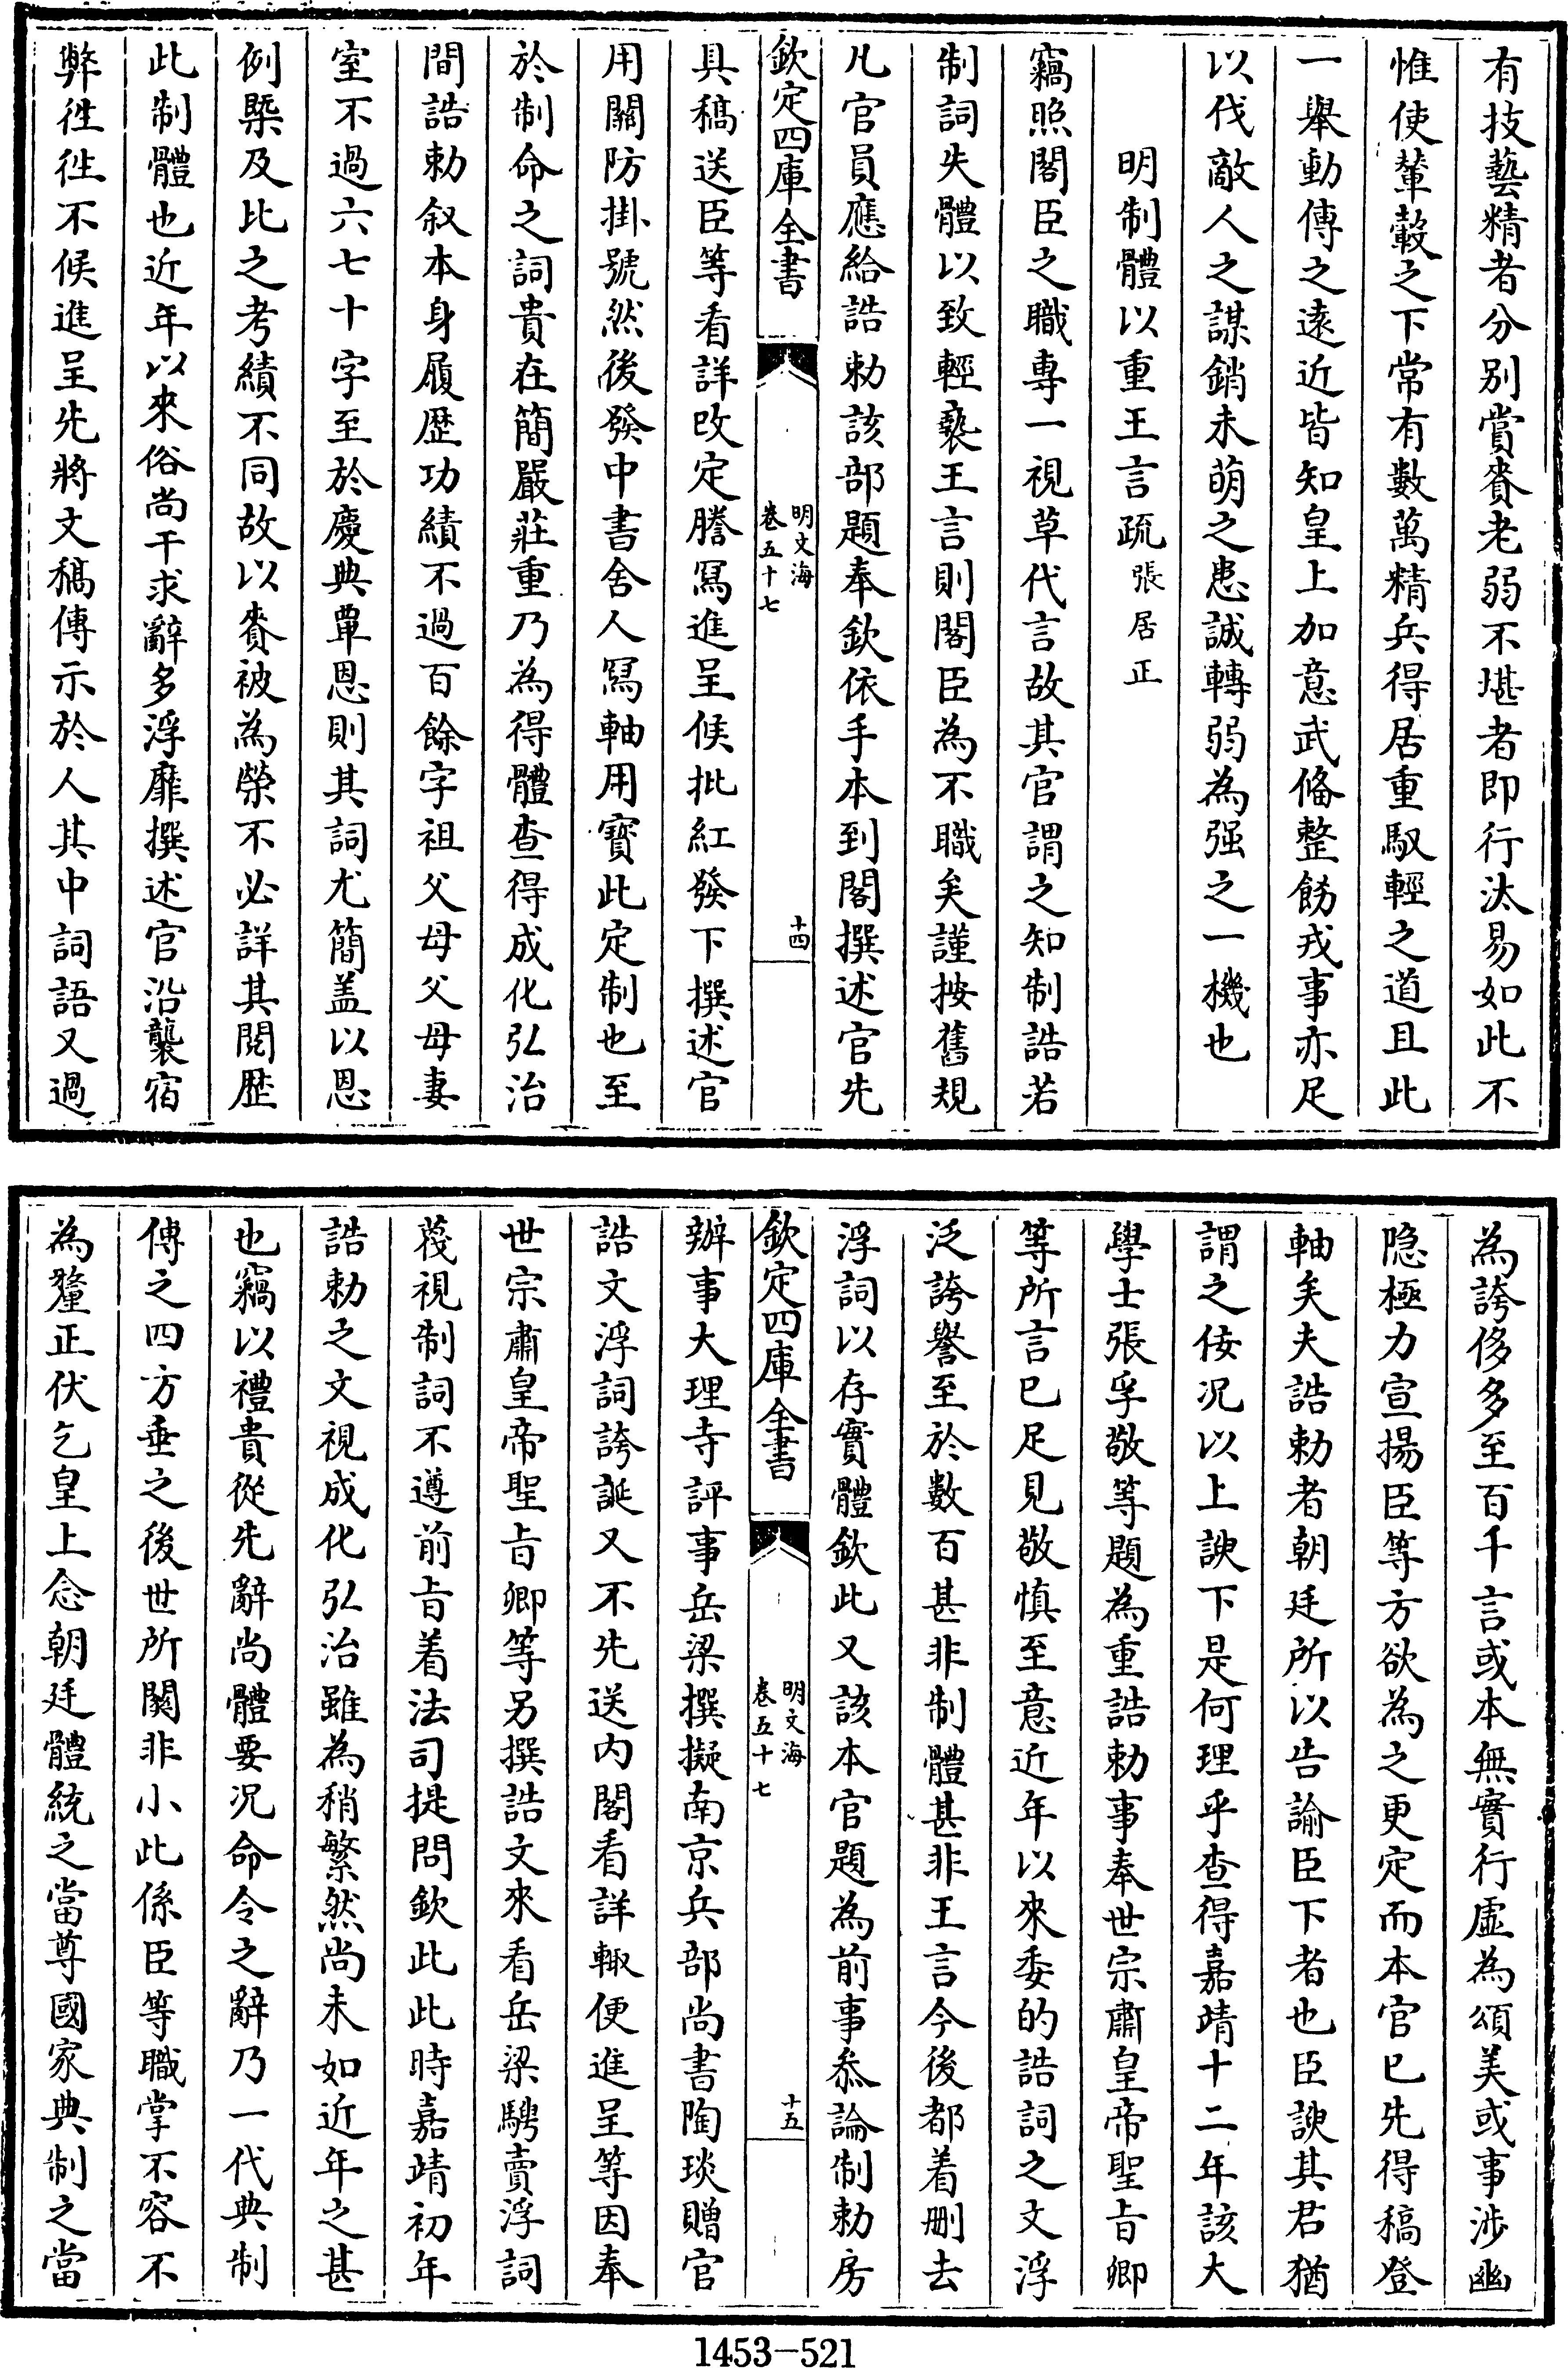 有技藝精者分别賞賚老弱不堪者即行汰易如此不
惟使輦轂之下常有數萬精兵得居重馭輕之道且此
一舉動傳之遠近皆知皇上加意武俻整飭戎事亦足
以伐敵人之謀銷未萌之患誠轉弱為强之一機也
明制體以重王言疏張居正
竊照閣臣之職專一視草代言故其官謂之知制誥若
制詞失體以致輕褻王言則閣臣為不職矣謹按舊規
凡官員應給誥勅該部題奉欽依手本到閣撰述官先
欽定四庫全書
明文海
卷五十七
十四
具稿送臣等看詳改定謄冩進呈候批紅發下撰述官
用關防掛號然後發中書舍人冩軸用寶此定制也至
於制命之詞貴在簡嚴莊重乃為得體查得成化弘治
間誥勅叙本身履歴功績不過百餘字祖父母父母妻
室不過六七十字至於慶典覃恩則其詞尤簡盖以恩
例槩及比之考績不同故以賚被為榮不必詳其閱歴
此制體也近年以來俗尚干求辭多浮靡撰述官沿襲宿
弊徃徃不候進呈先將文稿傳示於人其中詞語又過
為誇侈多至百千言或本無實行虛為頌美或事涉幽
隐極力宣揚臣等方欲為之更定而本官已先得稿登
軸矣夫誥勅者朝廷所以告諭臣下者也臣諛其君猶
謂之佞况以上諛下是何理乎查得嘉靖十二年該大
學士張孚敬等題為重誥勅事奉世宗肅皇帝聖旨卿
等所言已足見敬慎至意近年以來委的誥詞之文浮
泛誇譽至於數百甚非制體甚非王言今後都着删去
浮詞以存實體欽此又該本官題為前事叅論制勅房
欽定四庫全書
明文海
卷五十七
十五
辦事大理寺評事岳梁撰擬南京兵部尚書陶琰贈官
誥文浮詞誇誕又不先送内閣看詳輙便進呈等因奉
世宗肅皇帝聖旨卿等另撰誥文來看岳梁騁賣浮詞
蔑視制詞不遵前旨着法司提問欽此此時嘉靖初年
誥勅之文視成化弘治雖為稍繁然尚未如近年之甚
也竊以禮貴從先辭尚體要况命令之辭乃一代典制
傳之四方垂之後世所關非小此係臣等職掌不容不
為釐正伏乞皇上念朝廷體統之當尊國家典制之當
1453-521